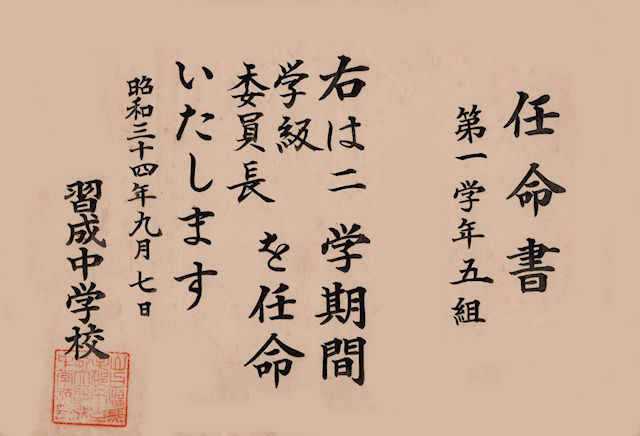 任命書
第一学年五組
右は二学期間
学級
委員長
を任命
いたします
昭和三十四年九月七日
習成中学校